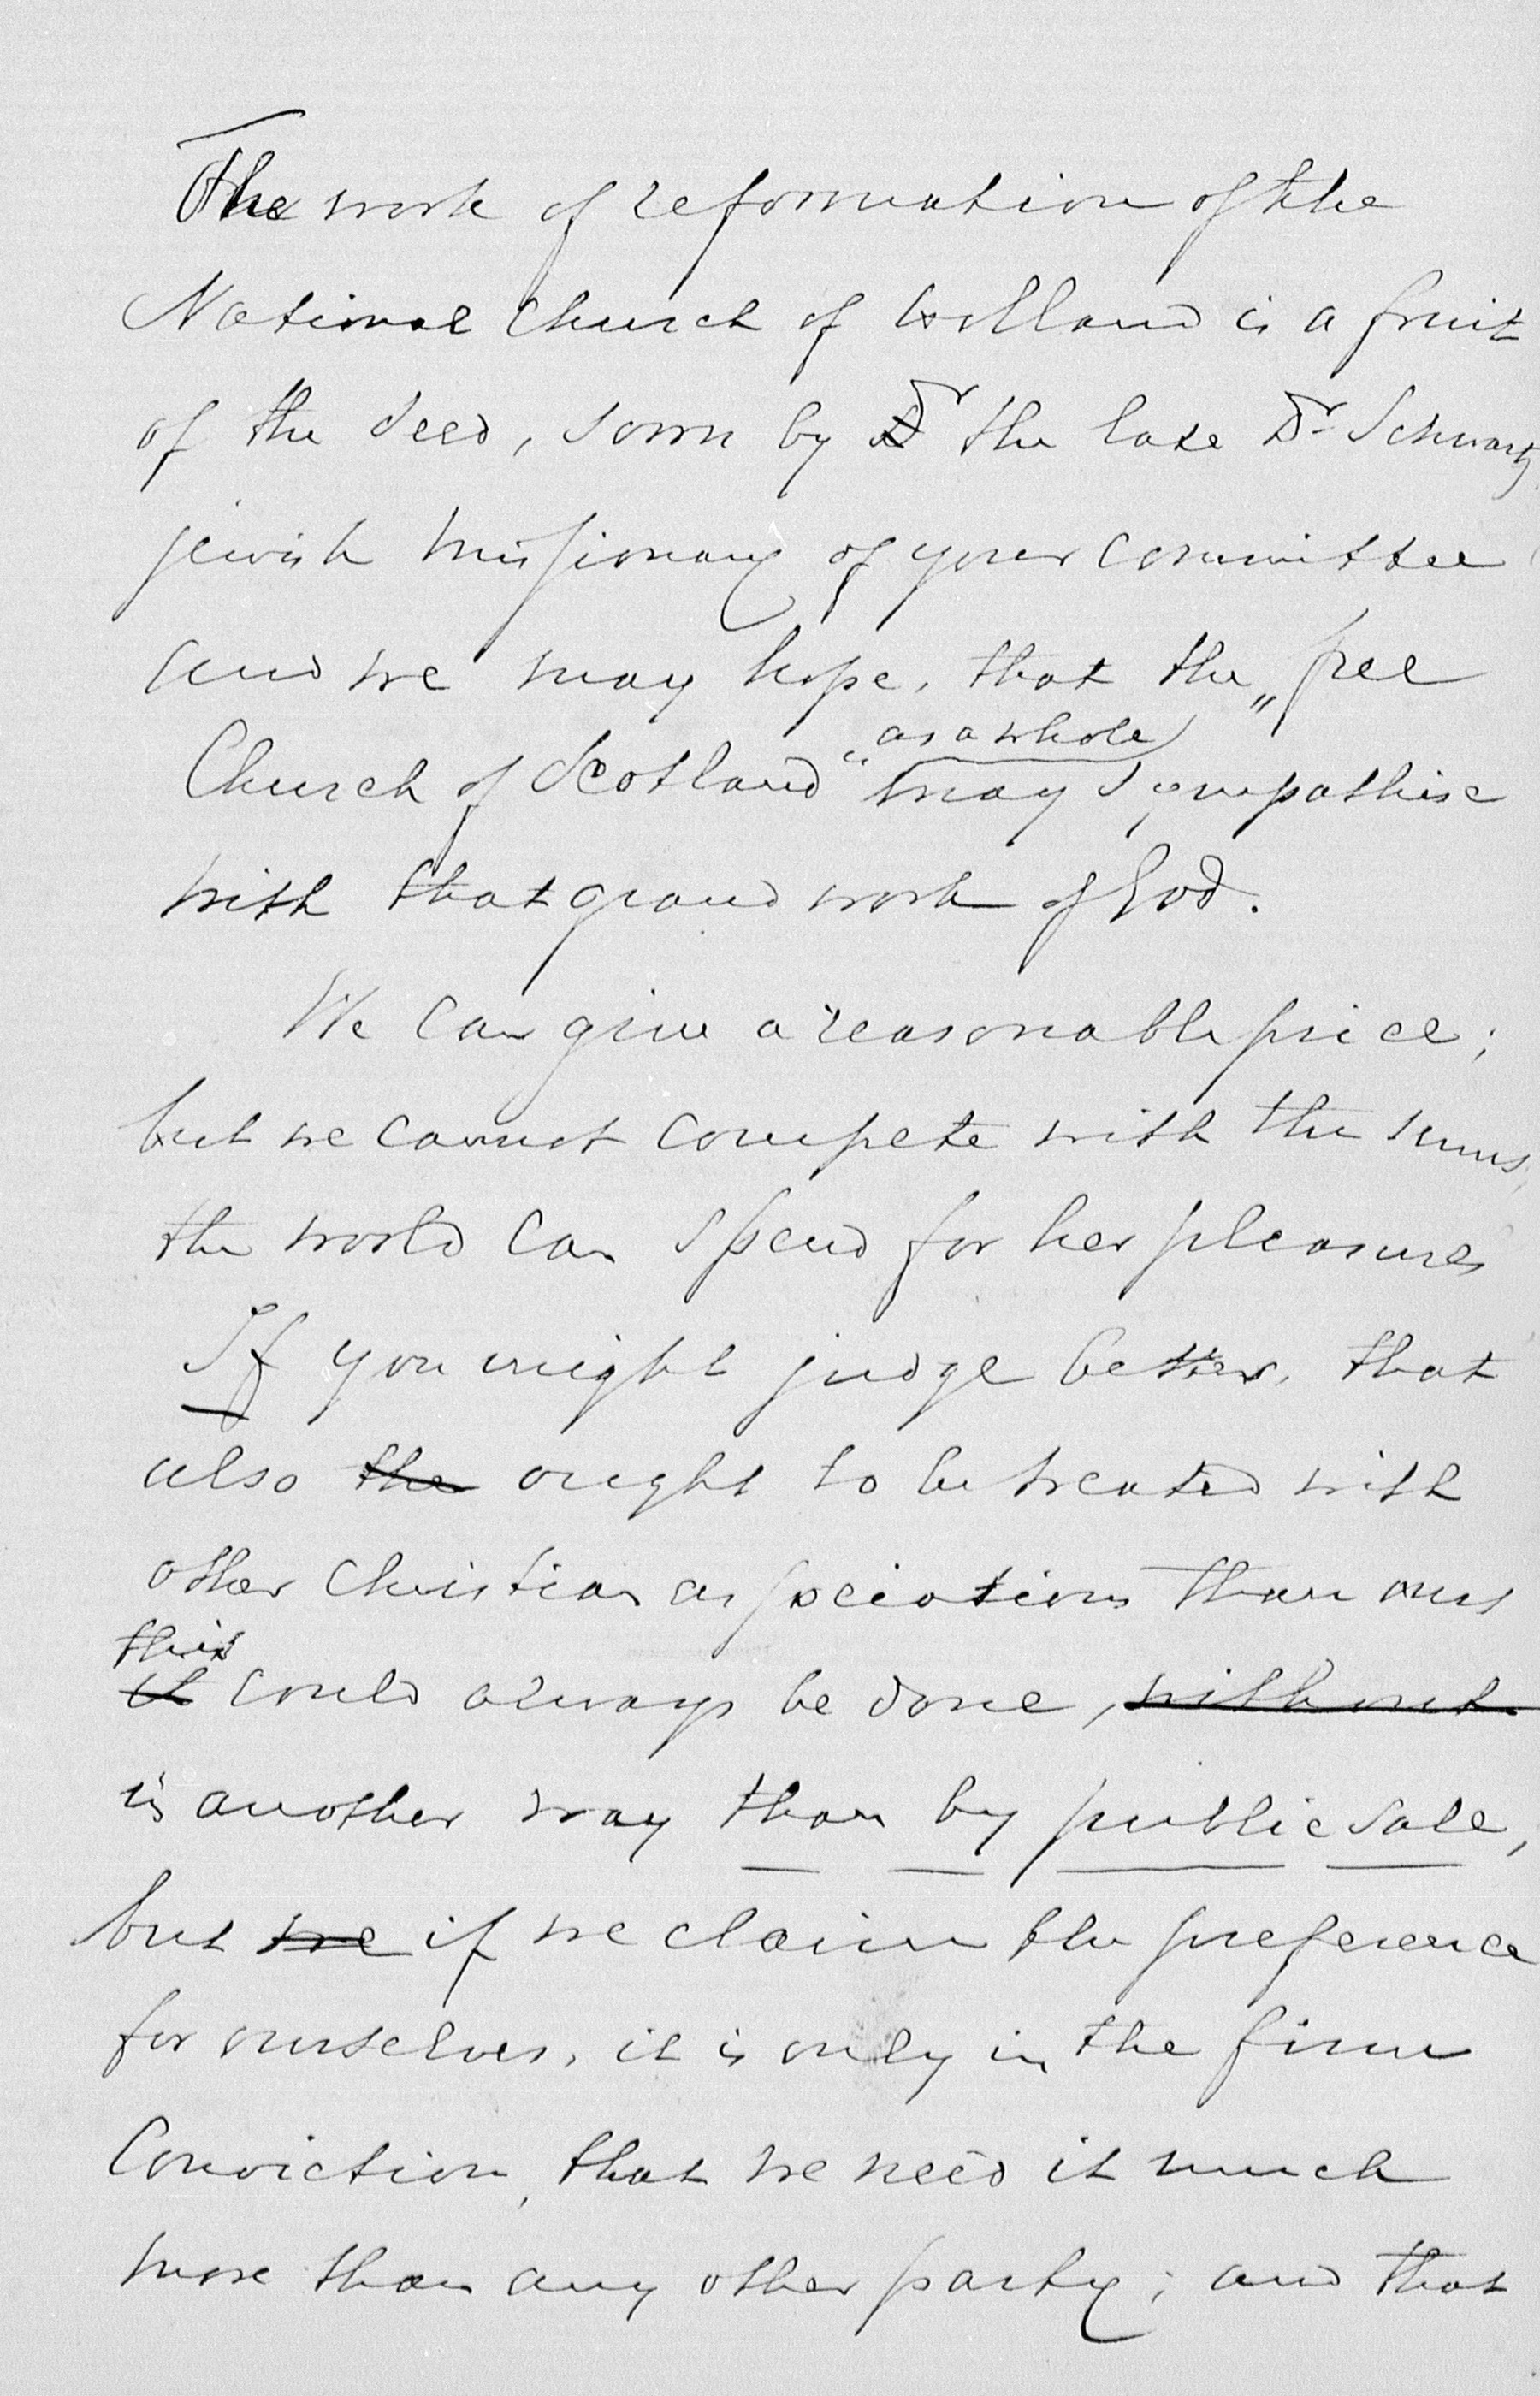 The work of reformation of the
National Church of Holland is a fruit
of the seed, sown by Dr the late Dr Schwartz,
jewish missionary of your committee
and we may hope, that the „free
as a whole
Church of Scotland“ may sympathise
with that grand work of God.
We can give a reasonable price;
but we cannot compete with the sums,
the world can spend for her pleasures
If you might judge better, that
also the ought to be treated with
other Christian associations than ours
this
it could always be done, without
in another way than by public sale,
but we if we claim the preference
for ourselves, it is only in the firm
Conviction, that we need it much
more than any other party; and that